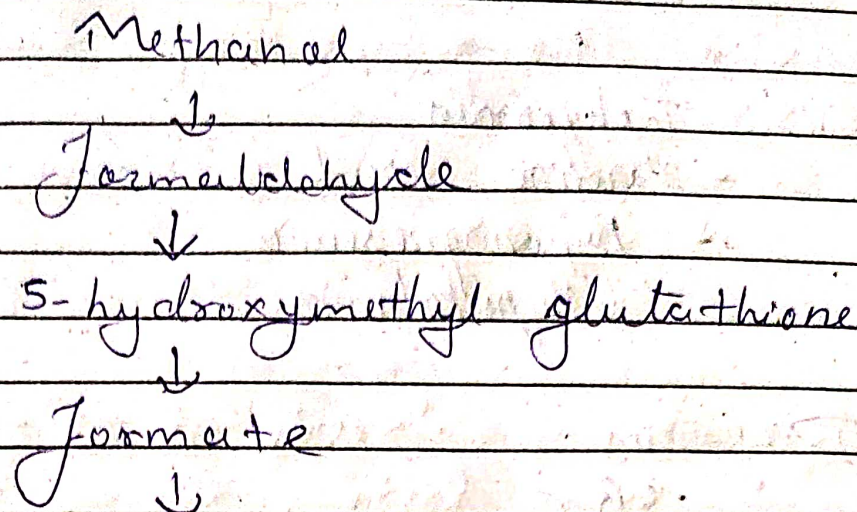 Methanol
↓
Formaldehyde
↓
S-hydroxymethyl glutathione
↓
Formate
↓